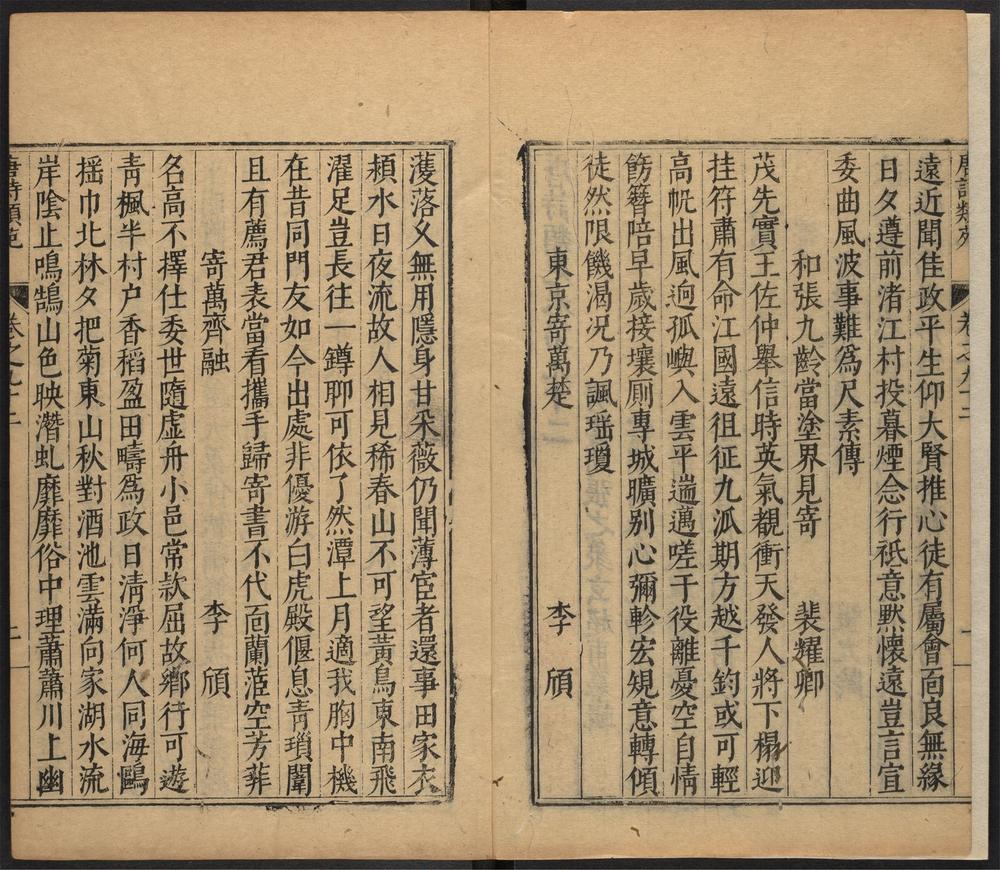 唐詩類苑 卷之九十二
遠近聞佳政平生仰大賢推心徒有屬會面良無緣
日夕遵前渚江村投暮煙念行祗意黙懷遠豈言宣
委曲風波事難為尺素傳
和張九齡當塗界見寄 裴耀卿
茂先實王佐仲舉信時英氣覩衝天發人將下榻迎
挂符肅有命江國遠徂征九派期方越千鈞或可輕
高帆出風迥孤嶼入雲平遄邁嗟于役離憂空自情
飭簪陪早歲接壤厠專城曠别心彌軫宏規意轉傾
徒然限饑渴况乃諷瑶瓊
東京寄萬楚 李頎
濩落乆無用隱身甘采薇仍聞薄宦者還事田家衣
潁水日夜流故人相見稀春山不可望黃鳥東南飛
濯足豈長往一罇聊可依了然潭上月適我胸中機
在昔同門友如今出處非優游白虎殿偃息青瑣闈
且有薦君表當看攜手歸寄書不代面蘭茝空芳菲
寄萬齊融 李頎
名高不擇仕委世隨虚舟小邑常歎屈故鄉行可遊
青楓半村户香稻盈田疇為政日清淨何人同海鷗
揺巾北林夕把菊東山秋對酒池雲滿向家湖水流
岸陰止鳴鵠山色映潛虬靡靡俗中理蕭蕭川上幽
唐詩類苑 卷之九十二 二